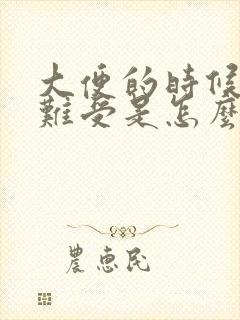 大便的時候
難受是怎麼
農惠民